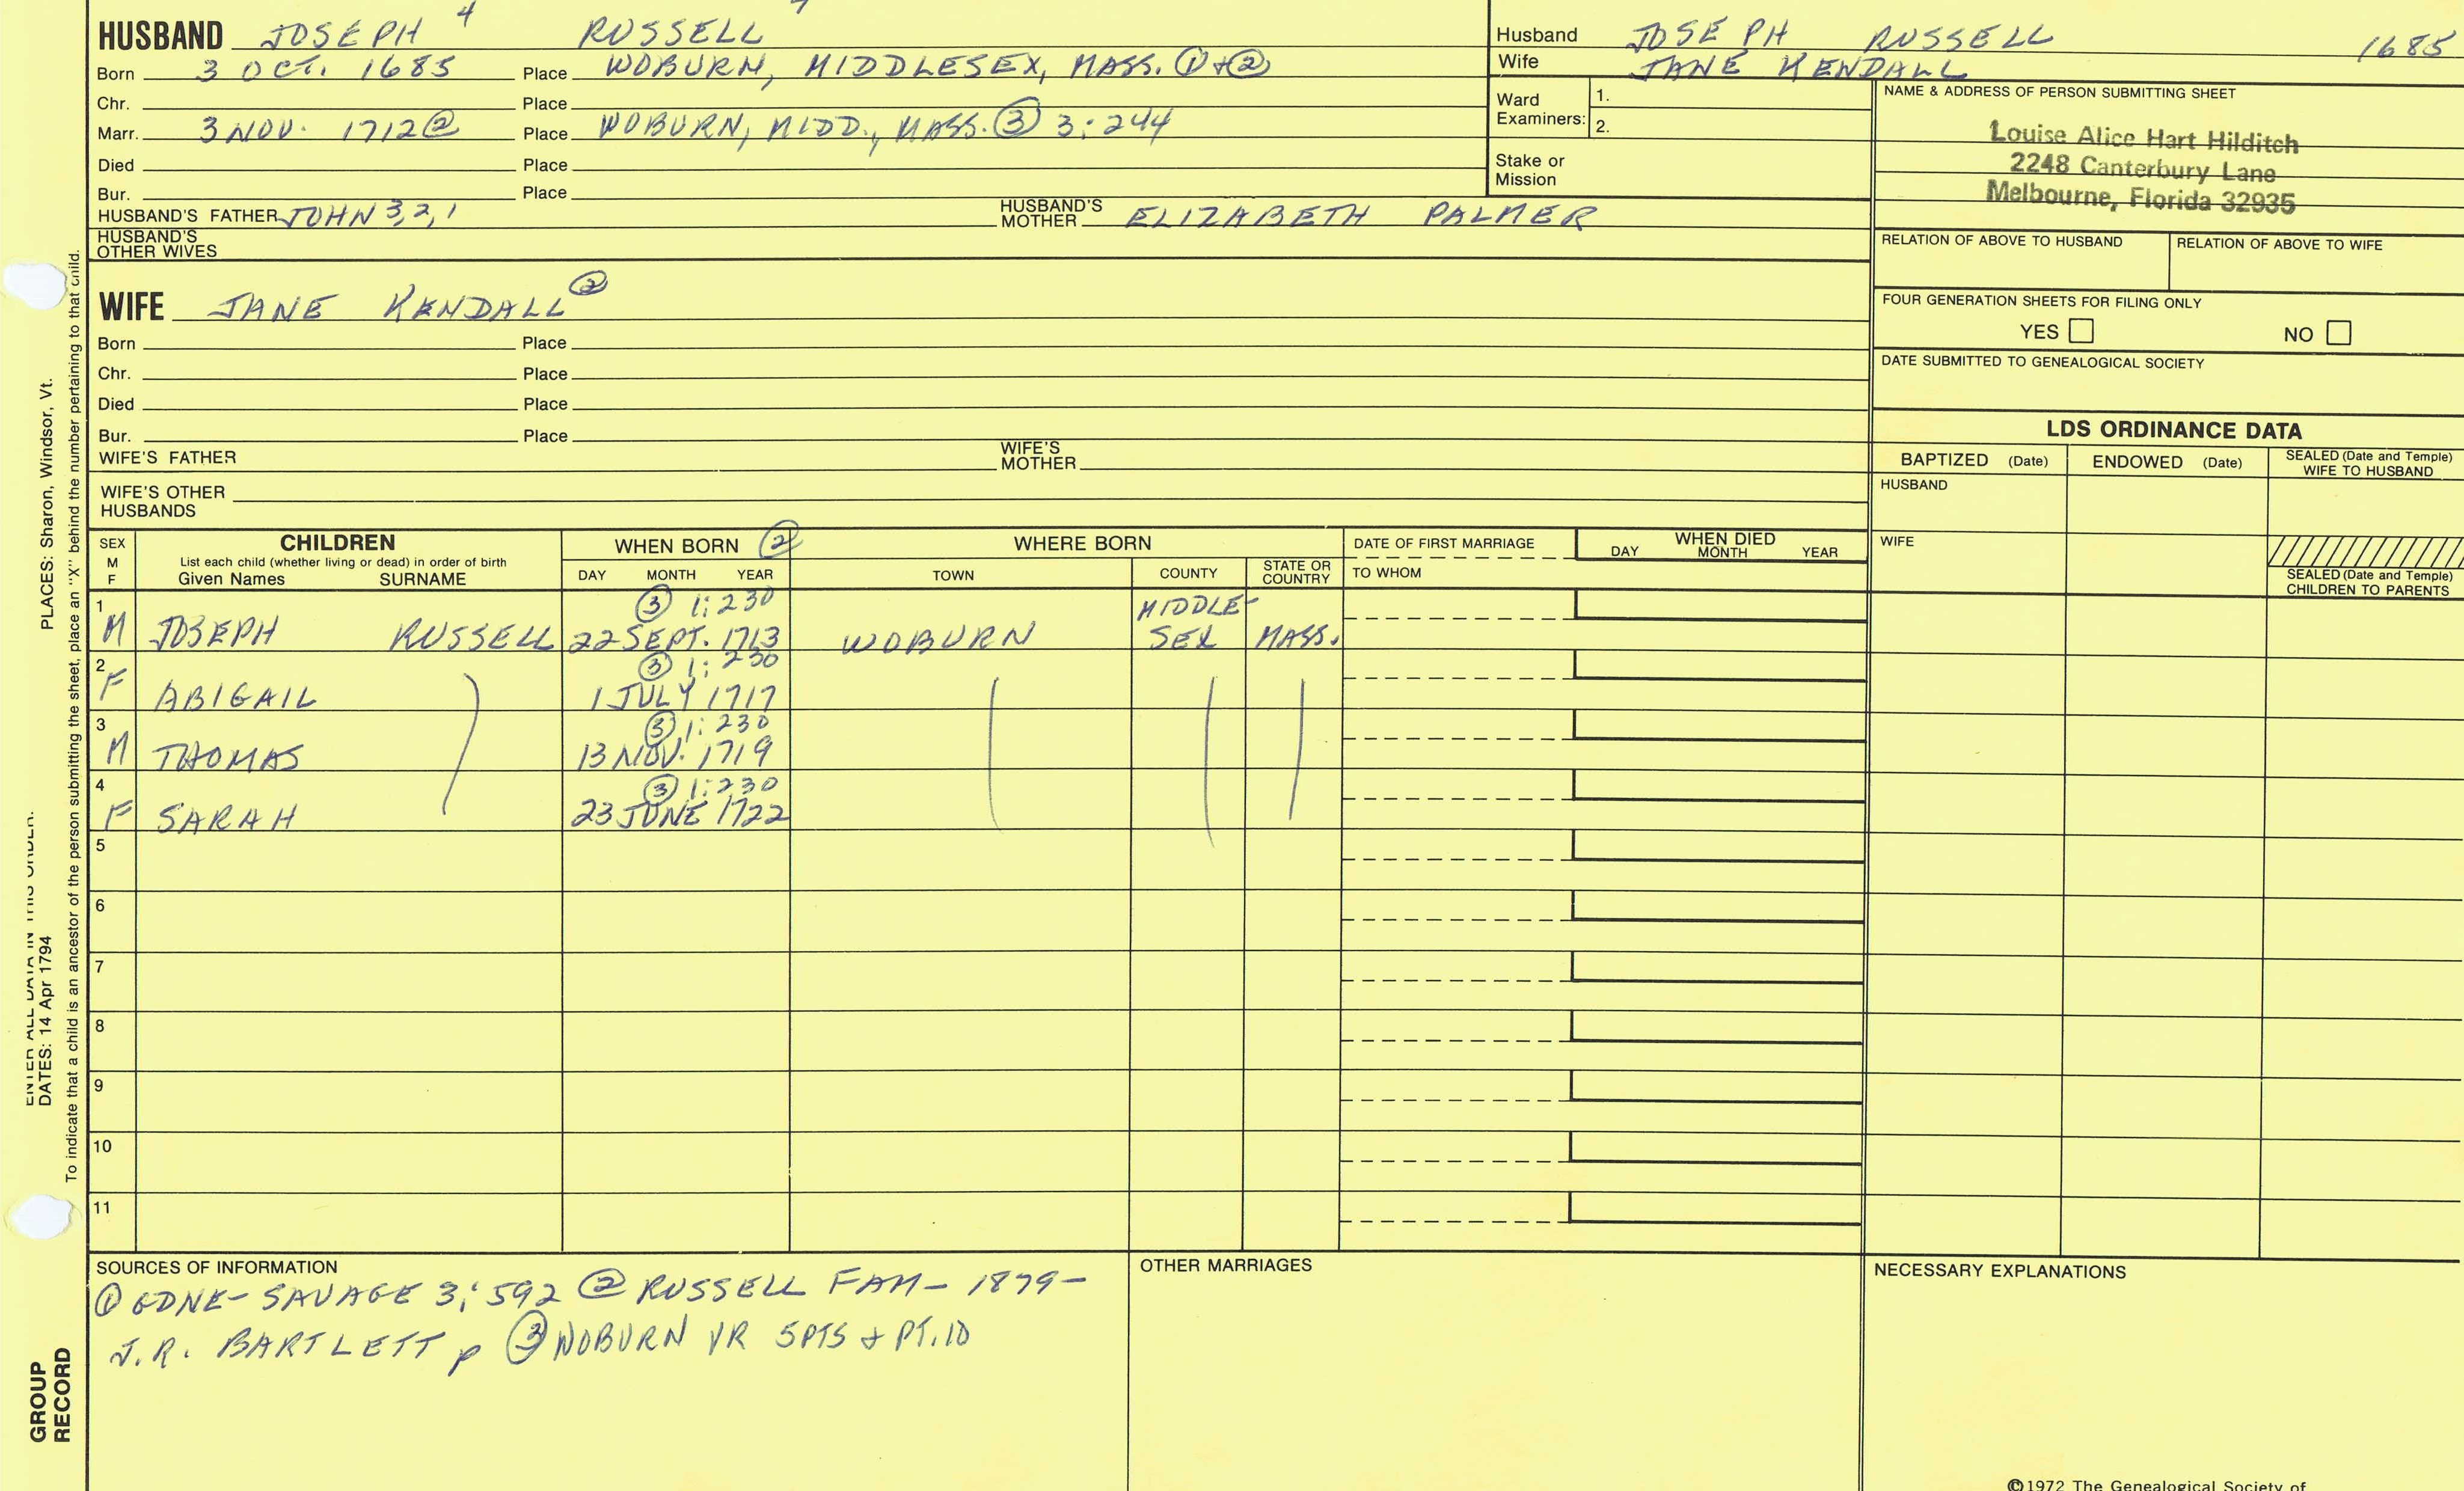 HUSBAND JOSEPH 4 RUSSELL
Born 3 OCT. 1685 Place WOBURN, MIDDLESEX, MASS. ① + ②
Chr. Place
Marr. 3 NOV. 1712 ② Place WOBURN, MIDD., MASS. ③ 3:244
Died Place
Bur. Place
HUSBAND'S FATHER JOHN 3,2,1 HUSBAND'S MOTHER ELIZABETH PALMER
HUSBAND'S OTHER WIVES
Husband JOSEPH RUSSELL 1685
Wife JANE KENDALL
Ward Examiners: 1.
2.
Stake or Mission
NAME & ADDRESS OF PERSON SUBMITTING SHEET
Louise Alice Hart Hilditch
2248 Canterbury Lane
Melbourne, Florida 32935
RELATION OF ABOVE TO HUSBAND RELATION OF ABOVE TO WIFE
FOUR GENERATION SHEETS FOR FILING ONLY
YES NO
DATE SUBMITTED TO GENEALOGICAL SOCIETY
WIFE JANE KENDALL ②
Born Place
Chr. Place
Died Place
Bur. Place
WIFE'S FATHER WIFE'S MOTHER
WIFE'S OTHER HUSBANDS
LDS ORDINANCE DATA
BAPTIZED (Date) ENDOWED (Date) SEALED (Date and Temple) WIFE TO HUSBAND
HUSBAND
WIFE
SEALED (Date and Temple) CHILDREN TO PARENTS
SEX M F
CHILDREN
List each child (whether living or dead) in order of birth
Given Names SURNAME
WHEN BORN ②
DAY MONTH YEAR
WHERE BORN
TOWN COUNTY STATE OR COUNTRY
DATE OF FIRST MARRIAGE
TO WHOM
WHEN DIED
DAY MONTH YEAR
1 ③ 1:230 MIDDLE-
M JOSEPH RUSSELL 22 SEPT. 1713 WOBURN SEX MASS.
2 ③ 1:230
F ABIGAIL 1 JULY 1717
3 ③ 1:230
M THOMAS 13 NOV. 1719
4 ③ 1:230
F SARAH 23 JUNE 1722
5
6
7
8
9
10
11
SOURCES OF INFORMATION
① GDNE- SAVAGE 3:592 ② RUSSELL FAM- 1879-
J.R. BARTLETT p ③ WOBURN VR 5PTS + PT.10
OTHER MARRIAGES
NECESSARY EXPLANATIONS
©1972 The Genealogical Society of
PLACES: Sharon, Windsor, Vt.
ENTER ALL DATA IN THIS ORDER:
DATES: 14 Apr 1794
To indicate that a child is an ancestor of the person submitting the sheet, place an "X" behind the number pertaining to that child.
GROUP
RECORD